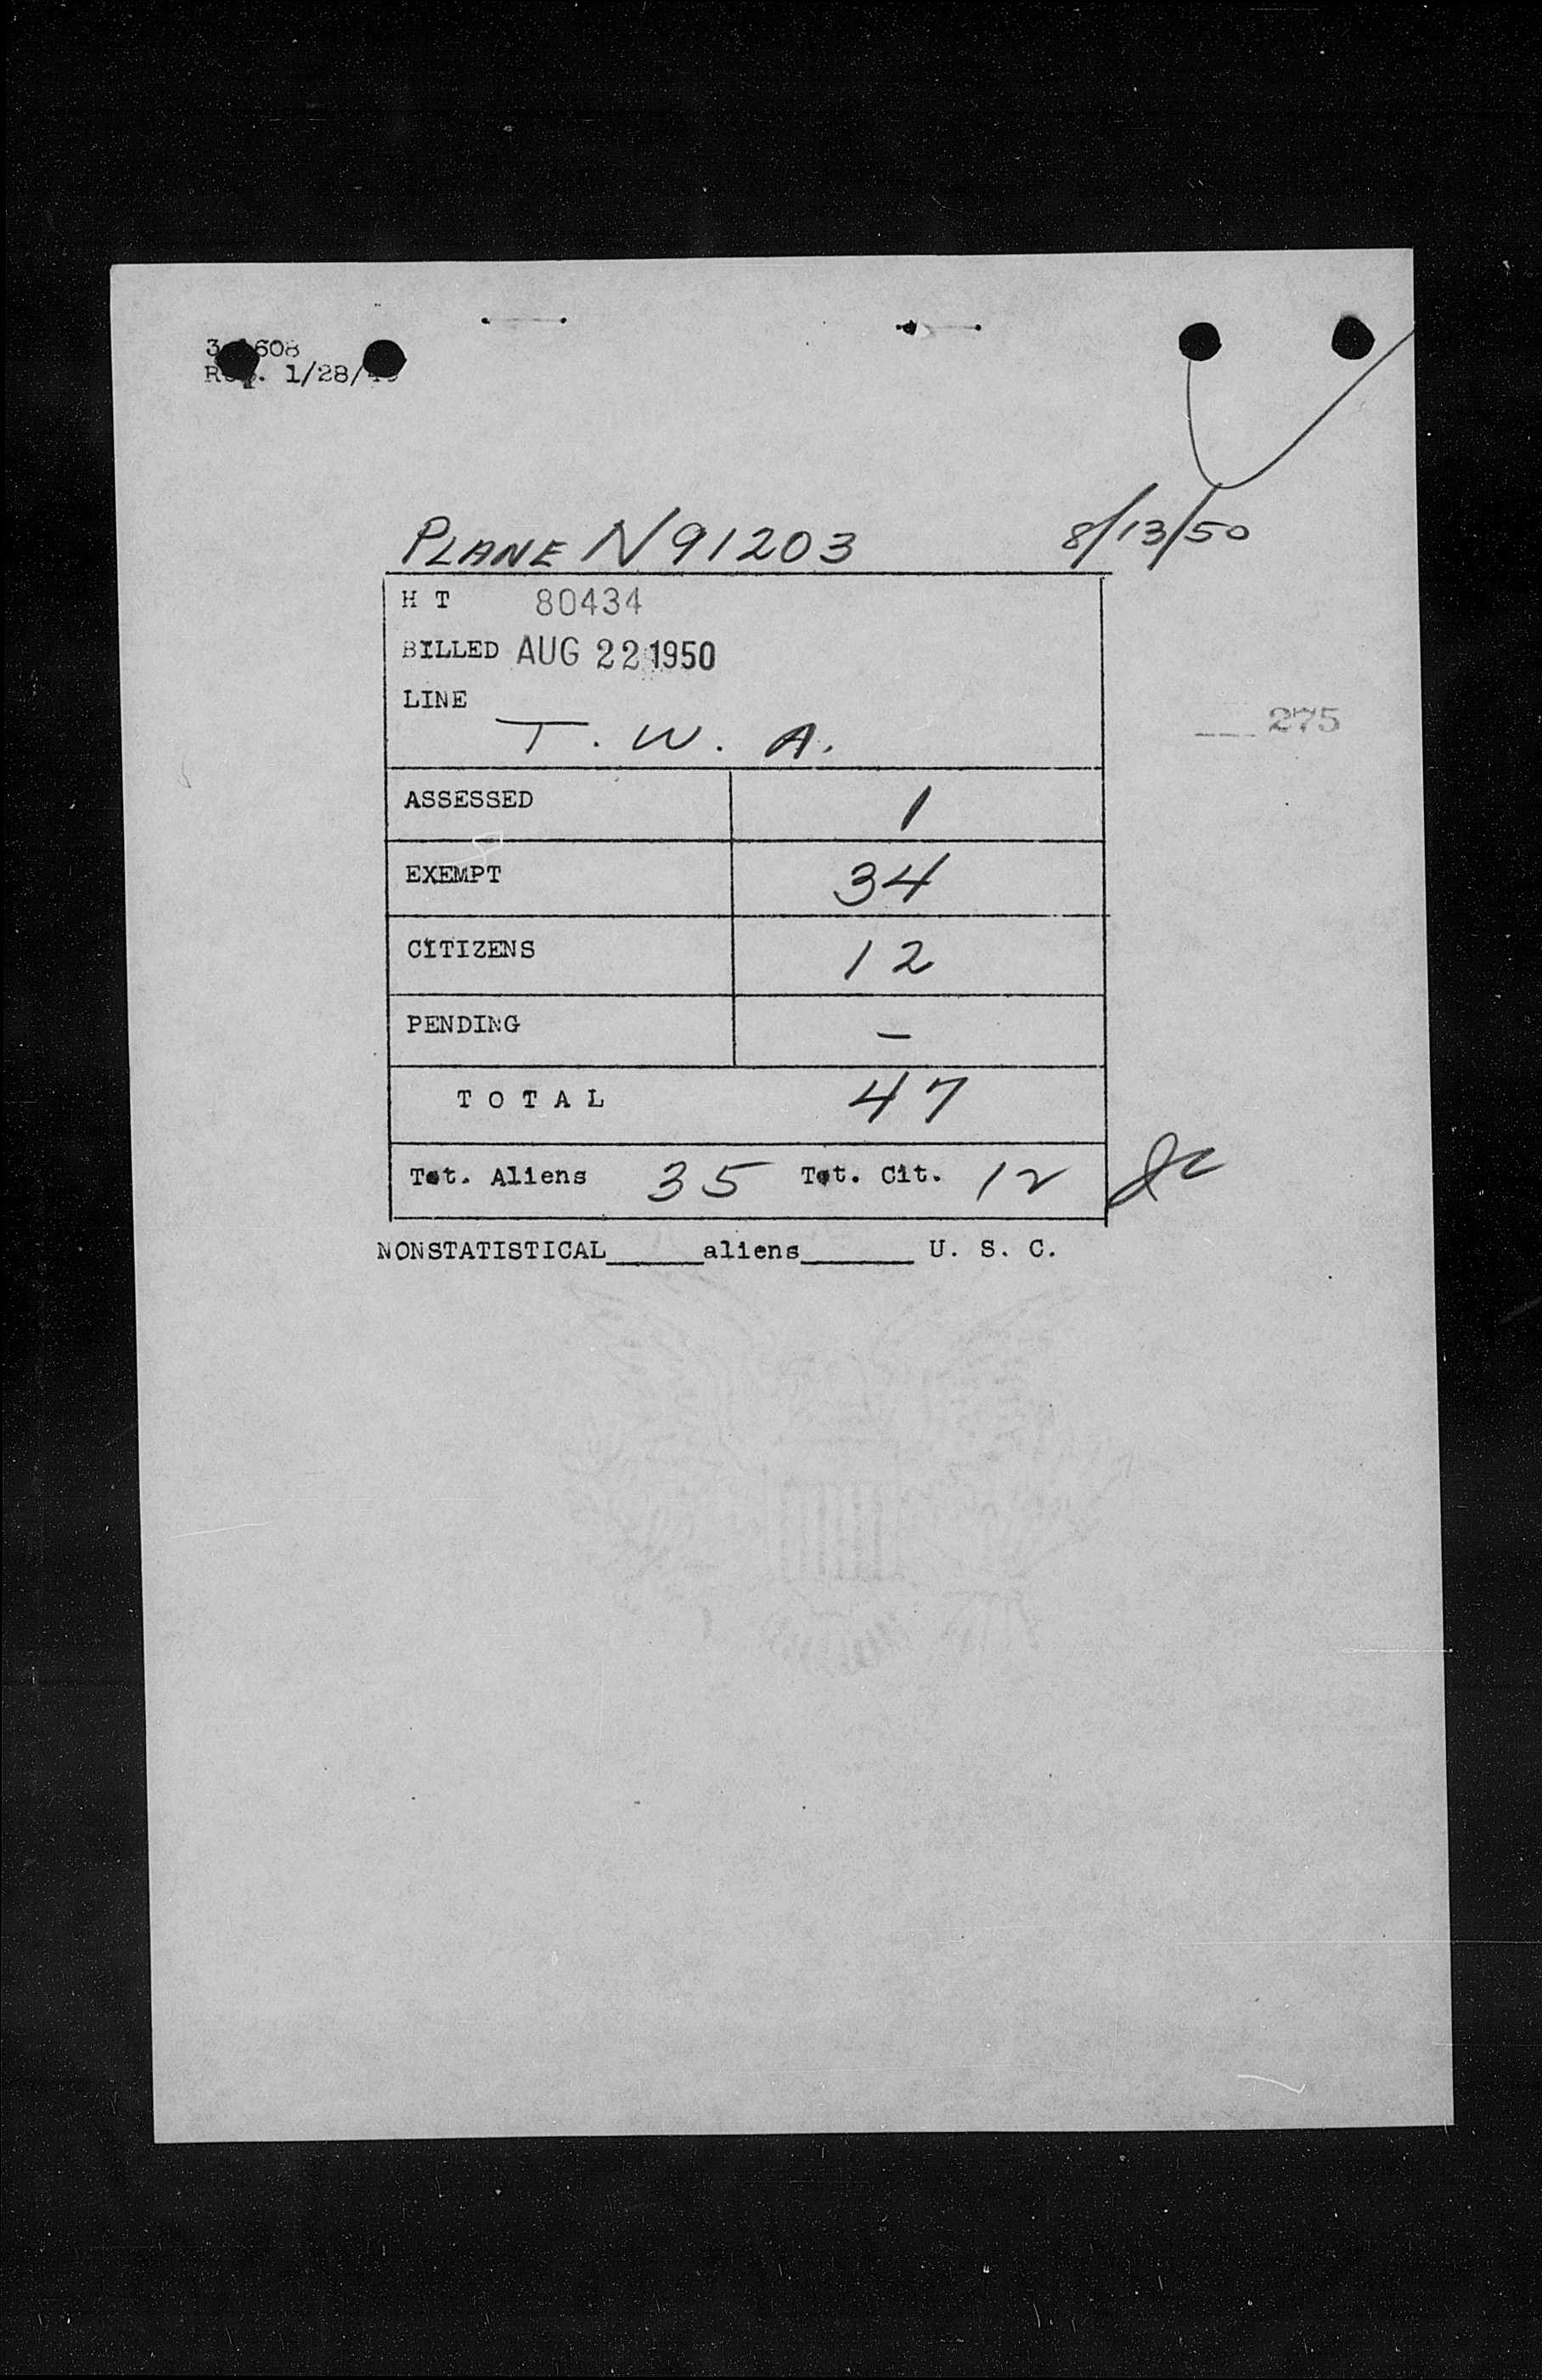 608
1/28/
PLANE N91203 8/13/50
H T 80434
BILLED AUG 22 1950
LINE
T. W. A.
275
ASSESSED 1
EXEMPT 34
CITIZENS 12
PENDING –
TOTAL 47
Tot. Aliens 35 Tot. Cit. 12
NONSTATISTICAL_____aliens______ U. S. C.